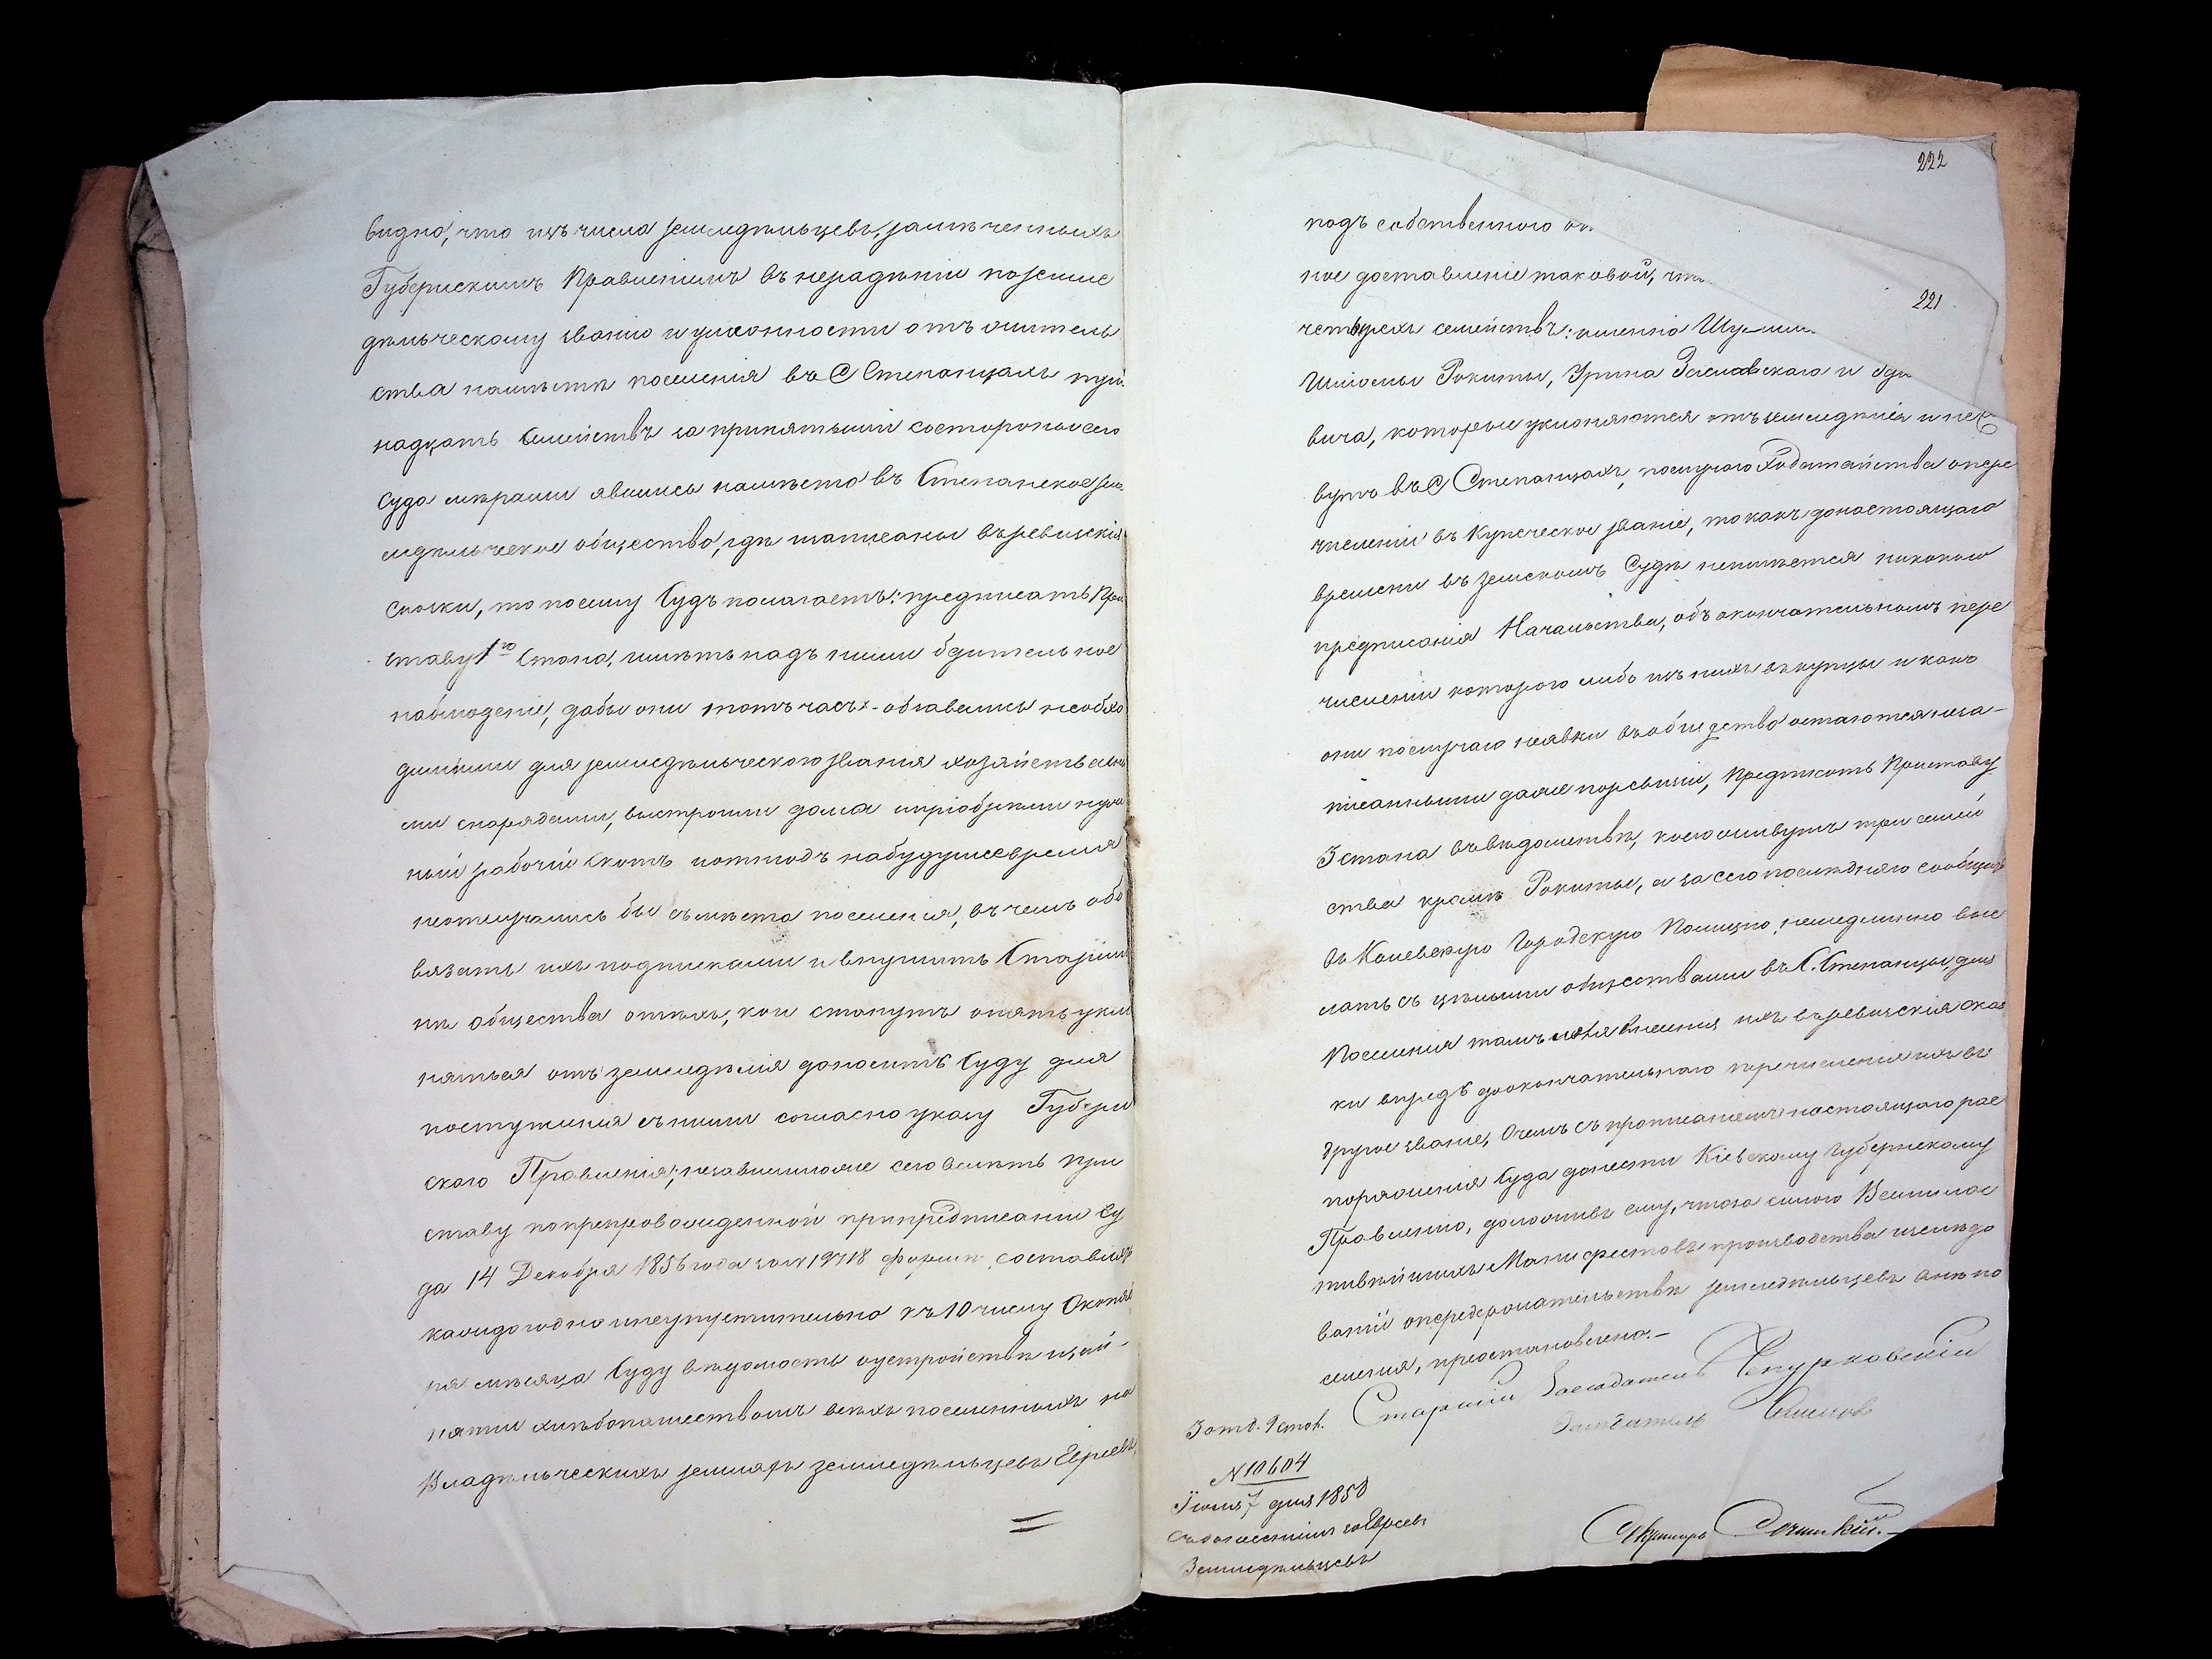 видно, что изъ числа земледѣльцевъ, замѣченныхъ
Губернскимъ Правленіемъ въ нерадѣніи по земле
дѣльческому званію и уклонности отъ житель
ства на мѣстѣ поселенія въ С Степанцахъ три
надцать семействъ за принятыми со стороны сего
Суда мѣрами явились на мѣсто въ Степанское зем
ледѣльческое общество, гдѣ и записаны въ ревизскія
сказки, то посему Судъ полагаетъ: предписать При
ставу 1го Стана, имѣть надъ ними бдительное
наблюденіе, дабы они тотъ часъ обзавелись необхо
димыми для земледѣльческого званія хозяйственны
ми снарядами, выстроили дома и пріобрѣли нуж
ный рабочій скотъ и отнюдъ на будущее время
не отлучались бы съ мѣста поселенія, въ чемъ обя
вязать ихъ подписками и внушить Старши
нѣ общества о тѣхъ, кои станутъ опять укло
няться отъ земледѣлія доносить Суду для
поступленія съ ними согласно указу Губерн
ского Правленія; независимо же сего велѣть При
ставу по препровожденной при предписаніи Су
да 14 Декабря 1856 года за № 19718 формѣ, составлять
каждогодно и неупустительно къ 10 числу Октяб
ря мѣсяца Суду вѣдомость о устройствѣ и зай-
нятіи хлѣбопашествомъ всѣхъ поселенныхъ на
Владѣльческихъ земляхъ земледѣльцевъ Евреевъ,
222
подъ собственного
ное доставленіе таковой,
221
четырехъ семействъ: именно
Шліомы Рокиты, Зрула Заславскаго и
вича, которые уклоняются отъ земледѣлія и не
вутъ въ С Степанцахъ, по случаю ходатайства о пере
численіи въ Купеческое званіе, то какъ до настоящаго
времени въ Земскомъ Судѣ не имѣется никакого
предписанія Начальства, объ окончательномъ пере
численіи которого либо изъ нихъ въ купцы и какъ
они по случаю неявки въ общество остаются неза-
писанными даже по ревизіи, Предписать Приставу
3 стана въ вѣдомствѣ, коего живутъ три семей
ства кромѣ Рокиты, а за сего послѣдняго сообщить
въ Каневскую Городскую Полицію, немедленно выс
лать съ цѣлыми обществами въ С. Степанцы, для
Поселенія тамъ и внесенія ихъ въ ревизскія сказ
ки впредь до окончательнаго перечисленія ихъ въ
другое званіе, О чемъ съ прописаніемъ настоящаго рас
поряженія Суда донести Кіевскому Губернскому
Правленію, доложивъ ему, что за силою Всемилос
тивѣйшихъ Манифестовъ производства изслѣдо
ваній о передержательствѣ земледѣльцевъ внѣ по
селенія, преостановлено.-
Старшій Засѣдатель
Засѣдатель
№ 10604
Іюля 7 дня 1858
Съ донесеніемъ за Евреевъ
Земледѣльцевъ
Секретарь